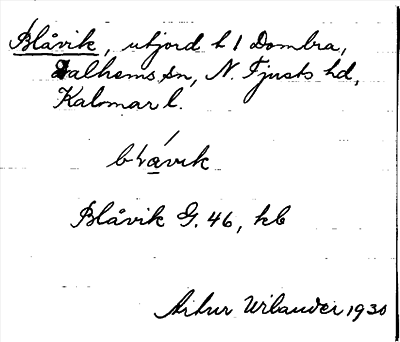 Blåvik, utjord t 1 Dombra,
Dalhems sn, N. Tjusts hd,
Kalmar l.
blåvik
Blåvik G. 46, kb
Artur Wilander 1930